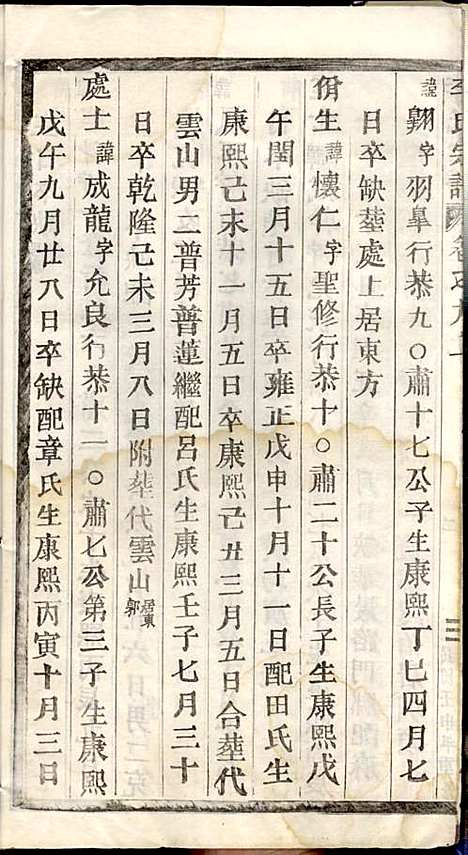 諱翱字羽皋行恭九〇肅十七公子生康熙丁巳四月七
日卒缺塟處上居東方
佾生諱懷仁字聖修行恭十〇肅二十公長子生康熙戊
午閏三月十五日卒雍正戊申十月十一日配田氏生
康熙己未十一月五日卒康熙己丑三月五日合塟代
雲山男二普芳普蓮繼配呂氏生康熙壬子七月三十
日卒乾隆己未三月八日附塟代雲山居東郭
處士諱成龍字允良行恭十一〇肅七公第三子生康熙
戊午九月廿八日卒缺配章氏生康熙丙寅十月三日